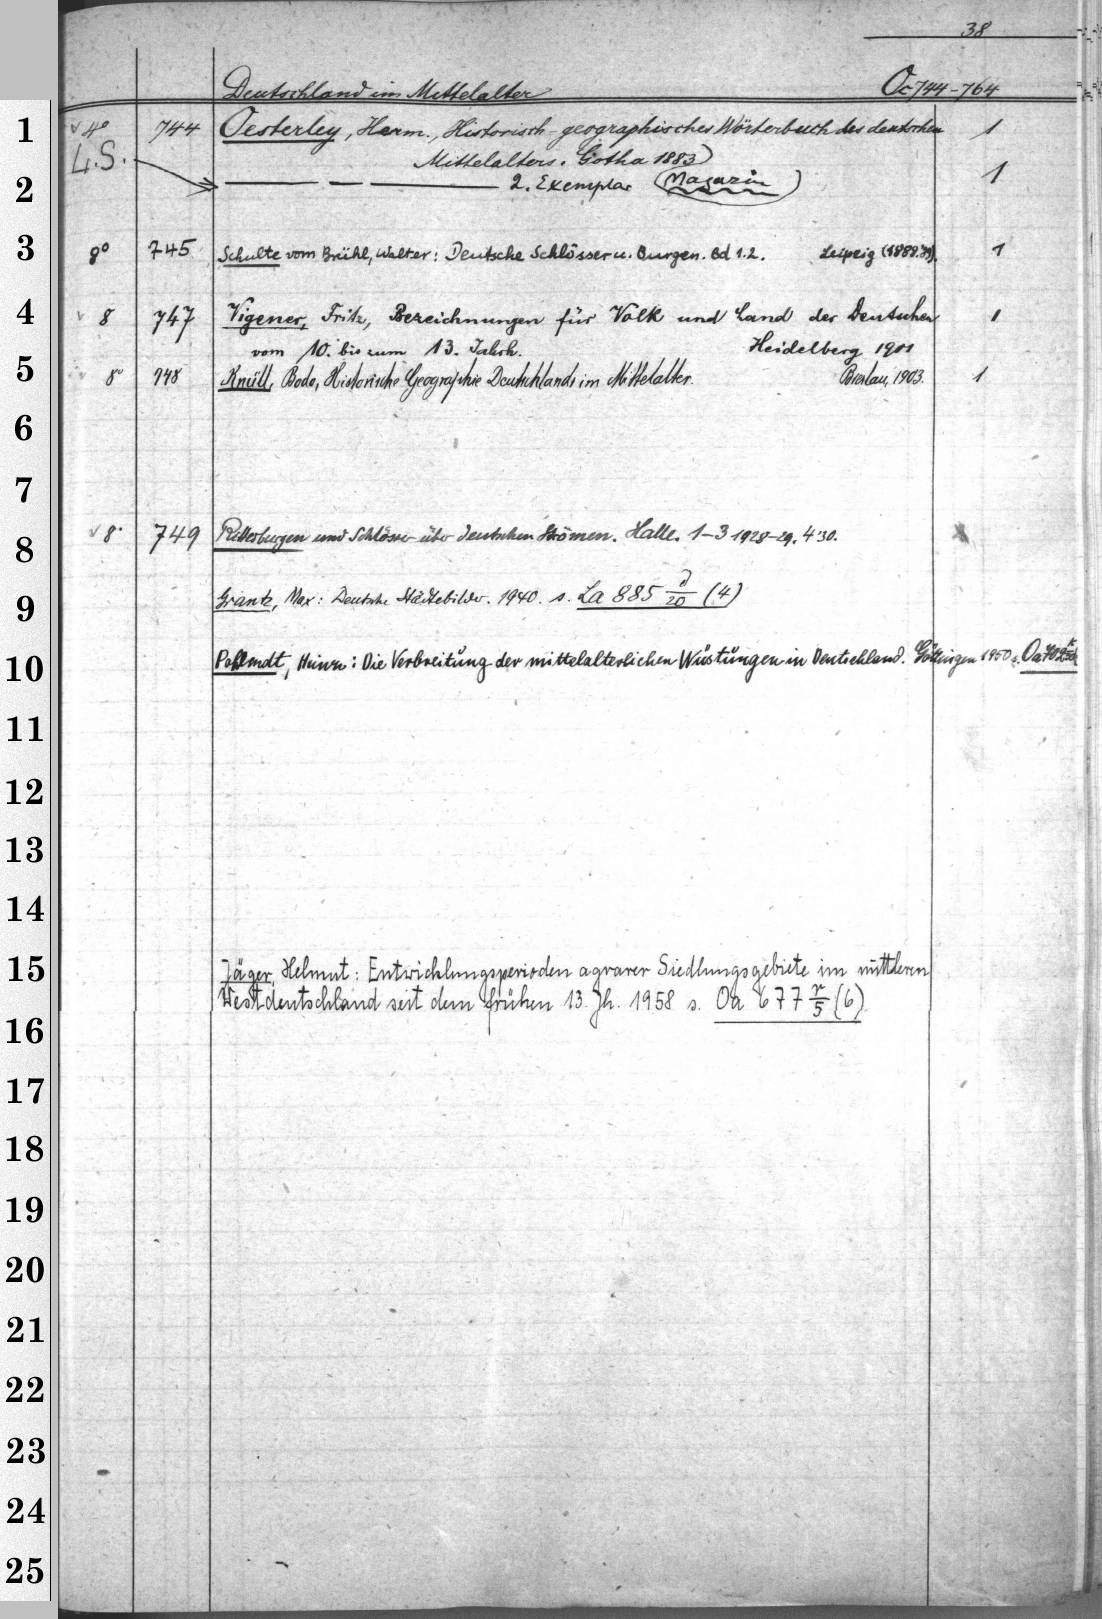 38
Deutschland im Mittelalter Oc 744-764
1 v 4° 744 Oesterley, Herm., Historisch-geographisches Wörterbuch des deutschen 1
L.S. Mittelalters. Gotha 1883
2 — — — 2. Exemplar (Magazin) 1
3 8° 745 Schulte vom Brühl, Walter: Deutsche Schlösser u. Burgen. Bd 1.2. Leipzig 1
4 v 8 747 Vigener, Fritz, Bezeichnungen für Volk und Land der Deutschen 1
vom 10. bis zum 13. Jahrh. Heidelberg 1901
5 8° 748 Knüll, Bodo, Historische Geographie Deutschlands im Mittelalter. Breslau, 1903. 1
6
7
8 v 8° 749 Ritterburgen und Schlösser über deutschen Strömen. Halle. 1-3 1928-29. 4°30.
9 Grantz, Max: Deutsche Städtebilder. 1940. s. La 885 /20 (4)
10 Pohlendt, Heinz: Die Verbreitung der mittelalterlichen Wüstungen in Deutschland. Göttingen 1950 s. Oa
11
12
13
14
15 Jäger, Helmut: Entwicklungsperioden agrarer Siedlungsgebiete im mittleren
Westdeutschland seit dem frühen 13. Jh. 1958 s. Oa 677 r/5 (6)
16
17
18
19
20
21
22
23
24
25